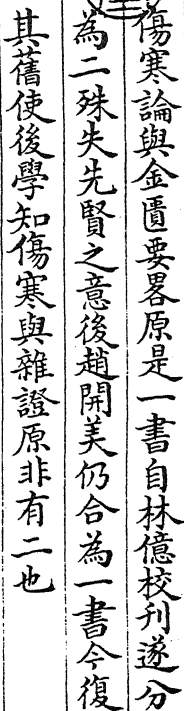 傷寒論與金匱要畧原是一書自林億校刋遂分
為二殊失先賢之意後趙開美仍合為一書今復
其舊使後學知傷寒與雜證原非有二也